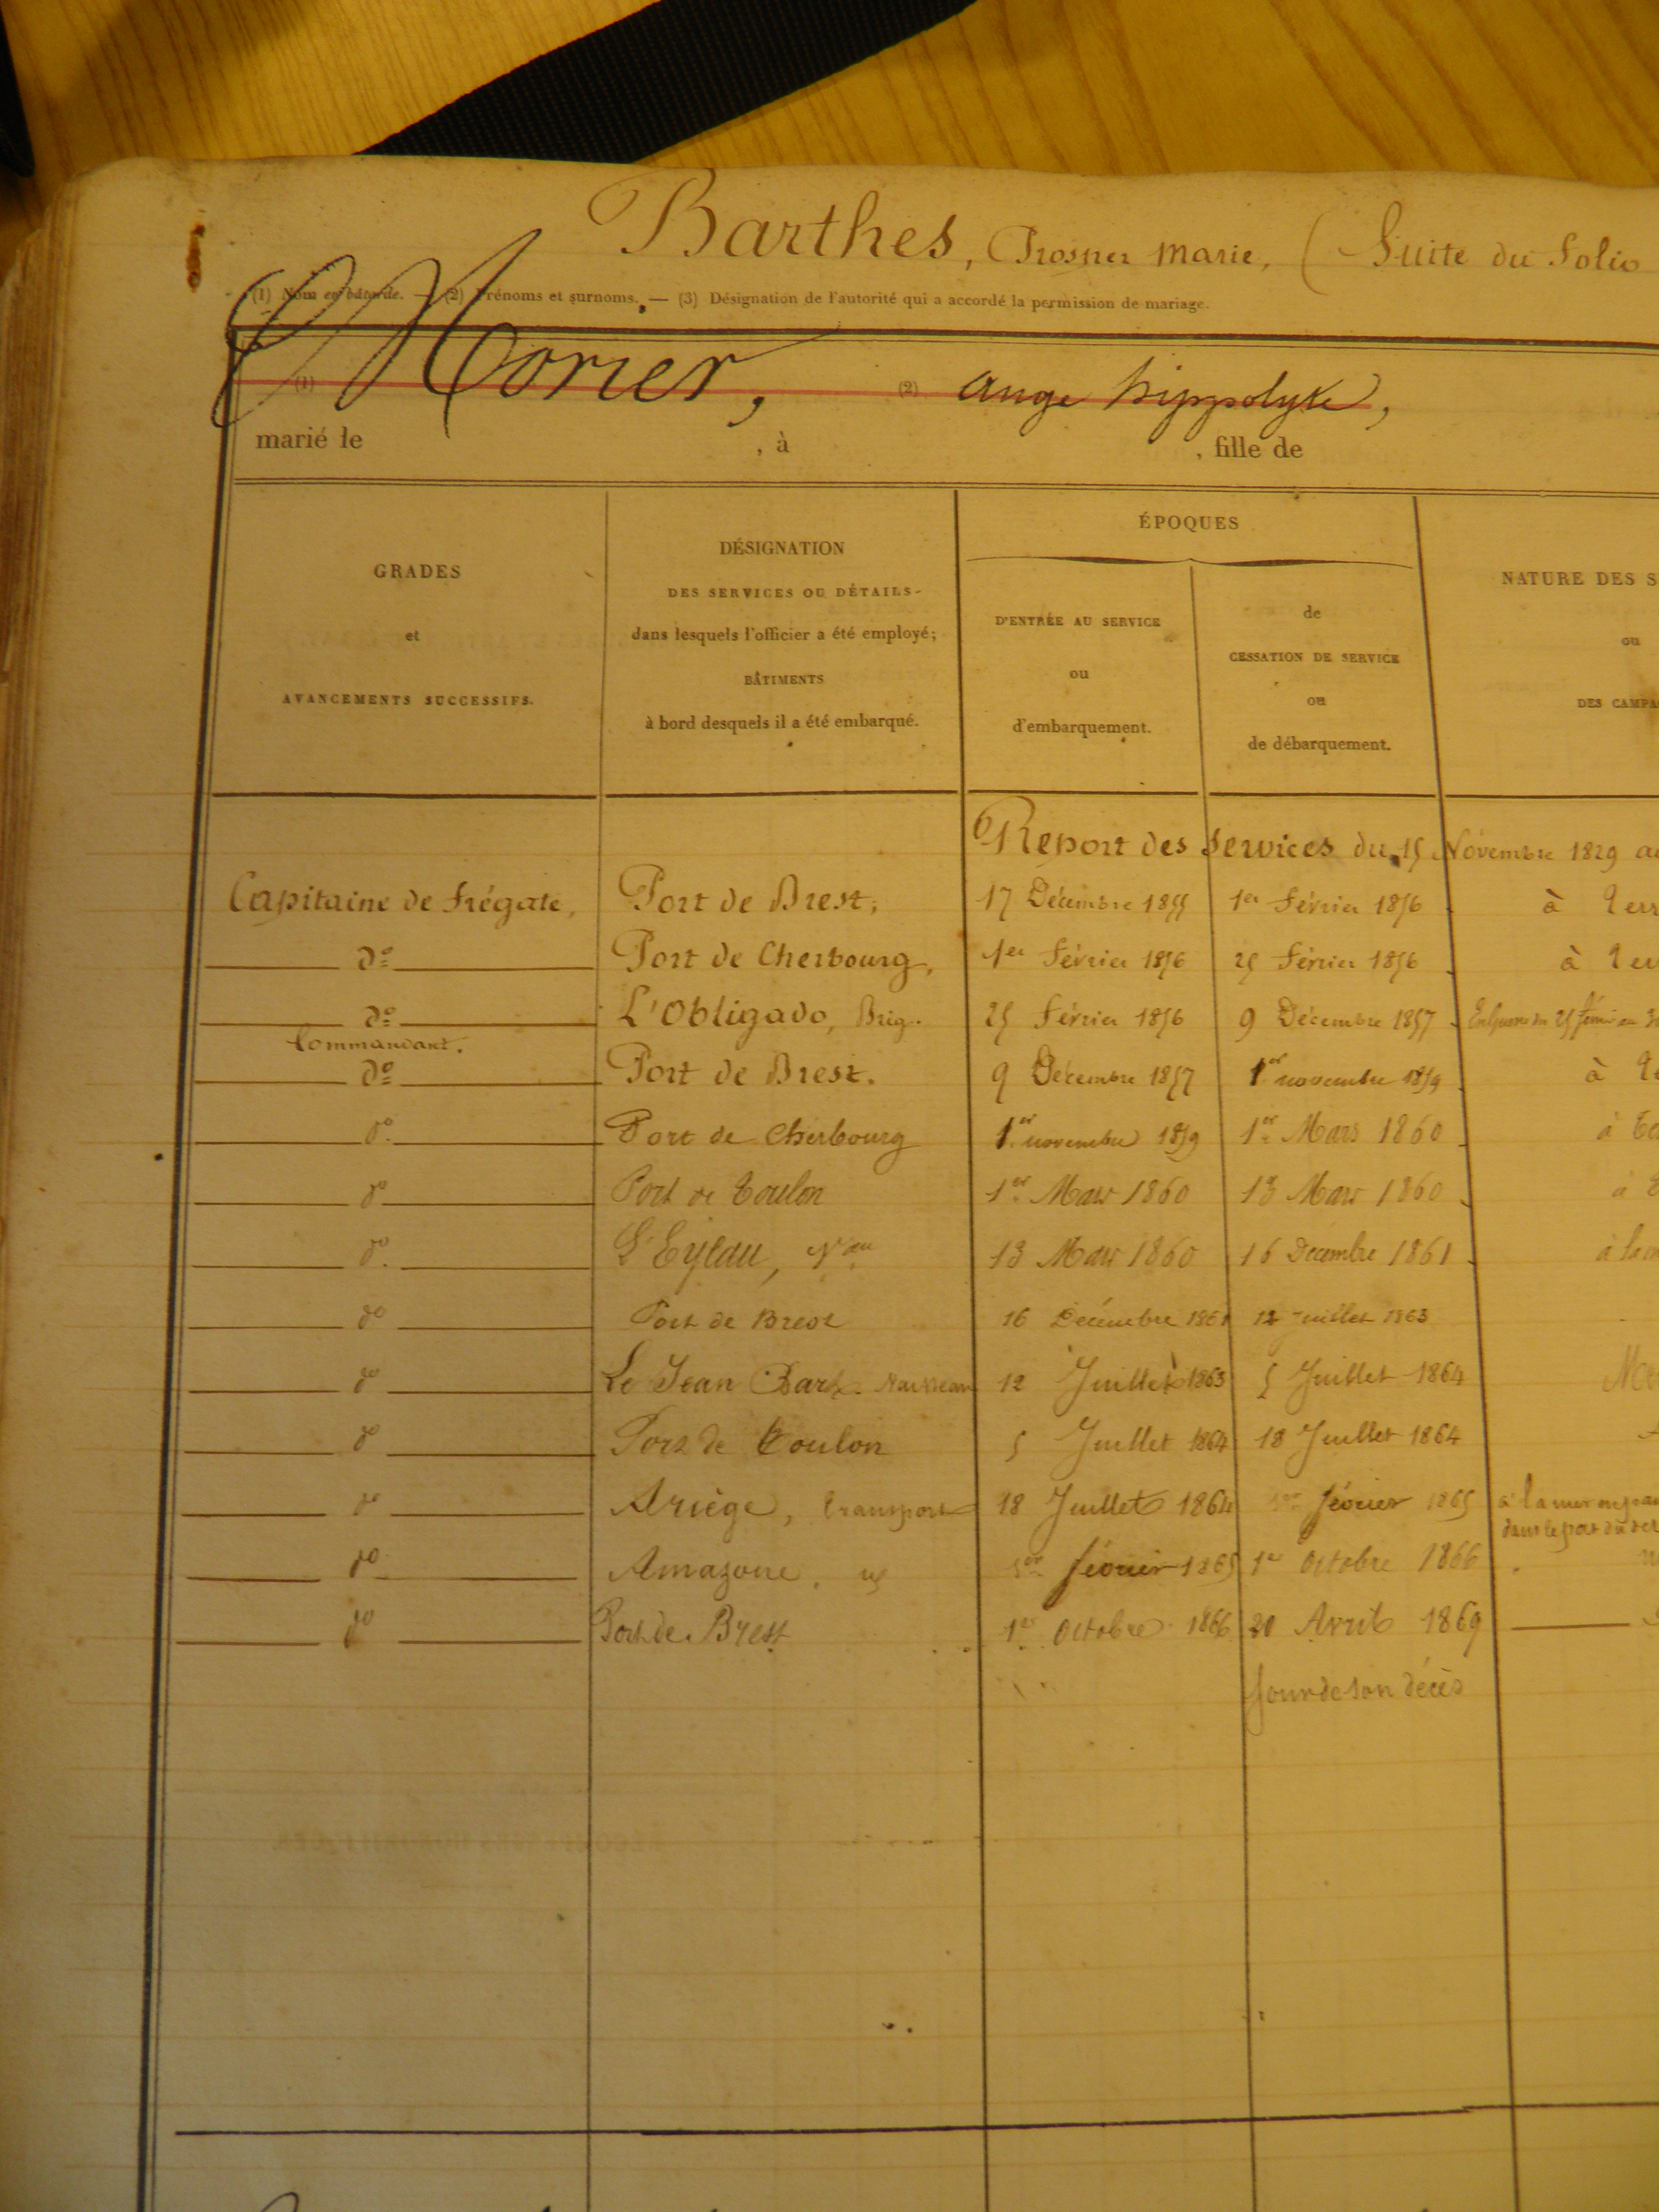 Barthes, Prosper Marie, (Suite du folio
(1) Nom en bâtarde. — (2) Prénoms et surnoms. — (3) Désignation de l'autorité qui a accordé la permission de mariage.
(1) Morier, (2) ange hippolyte,
marié le , à , fille de
GRADES
et
AVANCEMENTS SUCCESSIFS.
DÉSIGNATION
DES SERVICES OU DÉTAILS
dans lesquels l'officier a été employé;
BÂTIMENTS
à bord desquels il a été embarqué.
ÉPOQUES
D'ENTRÉE AU SERVICE
ou
d'embarquement.
de
CESSATION DE SERVICE
ou
de débarquement.
NATURE DES S
ou
DES CAMPA
Report des services du 15 Novembre 1829 au
Capitaine de frégate, Port de Brest, 17 Décembre 1855 1er Février 1856 à terr
do Port de Cherbourg, 1er Février 1856 25 Février 1856 à ter
do L'Obligado, Brig. 25 Février 1856 9 Décembre 1857 En guerre du 25 février au 30
Commandant.
do Port de Brest. 9 Décembre 1857 1er novembre 1859 à te
do Port de Cherbourg 1er novembre 1859 1er Mars 1860 à te
do Port de Toulon 1er Mars 1860 13 Mars 1860 à
do L'Eylau, Vau 13 Mars 1860 16 Décembre 1861 à la m
do Port de Brest 16 Décembre 1861 12 Juillet 1863
do Le Jean Bart. Vaisseau 12 Juillet 1863 5 Juillet 1864 Me
do Port de Toulon 5 Juillet 1864 18 Juillet 1864
do Ariège, transport 18 Juillet 1864 1er février 1865 à la mer
do Amazone. 1er février 1865 1er Octobre 1866
do Port de Brest 1er Octobre 1866 20 Avril 1869
Jour de son décès